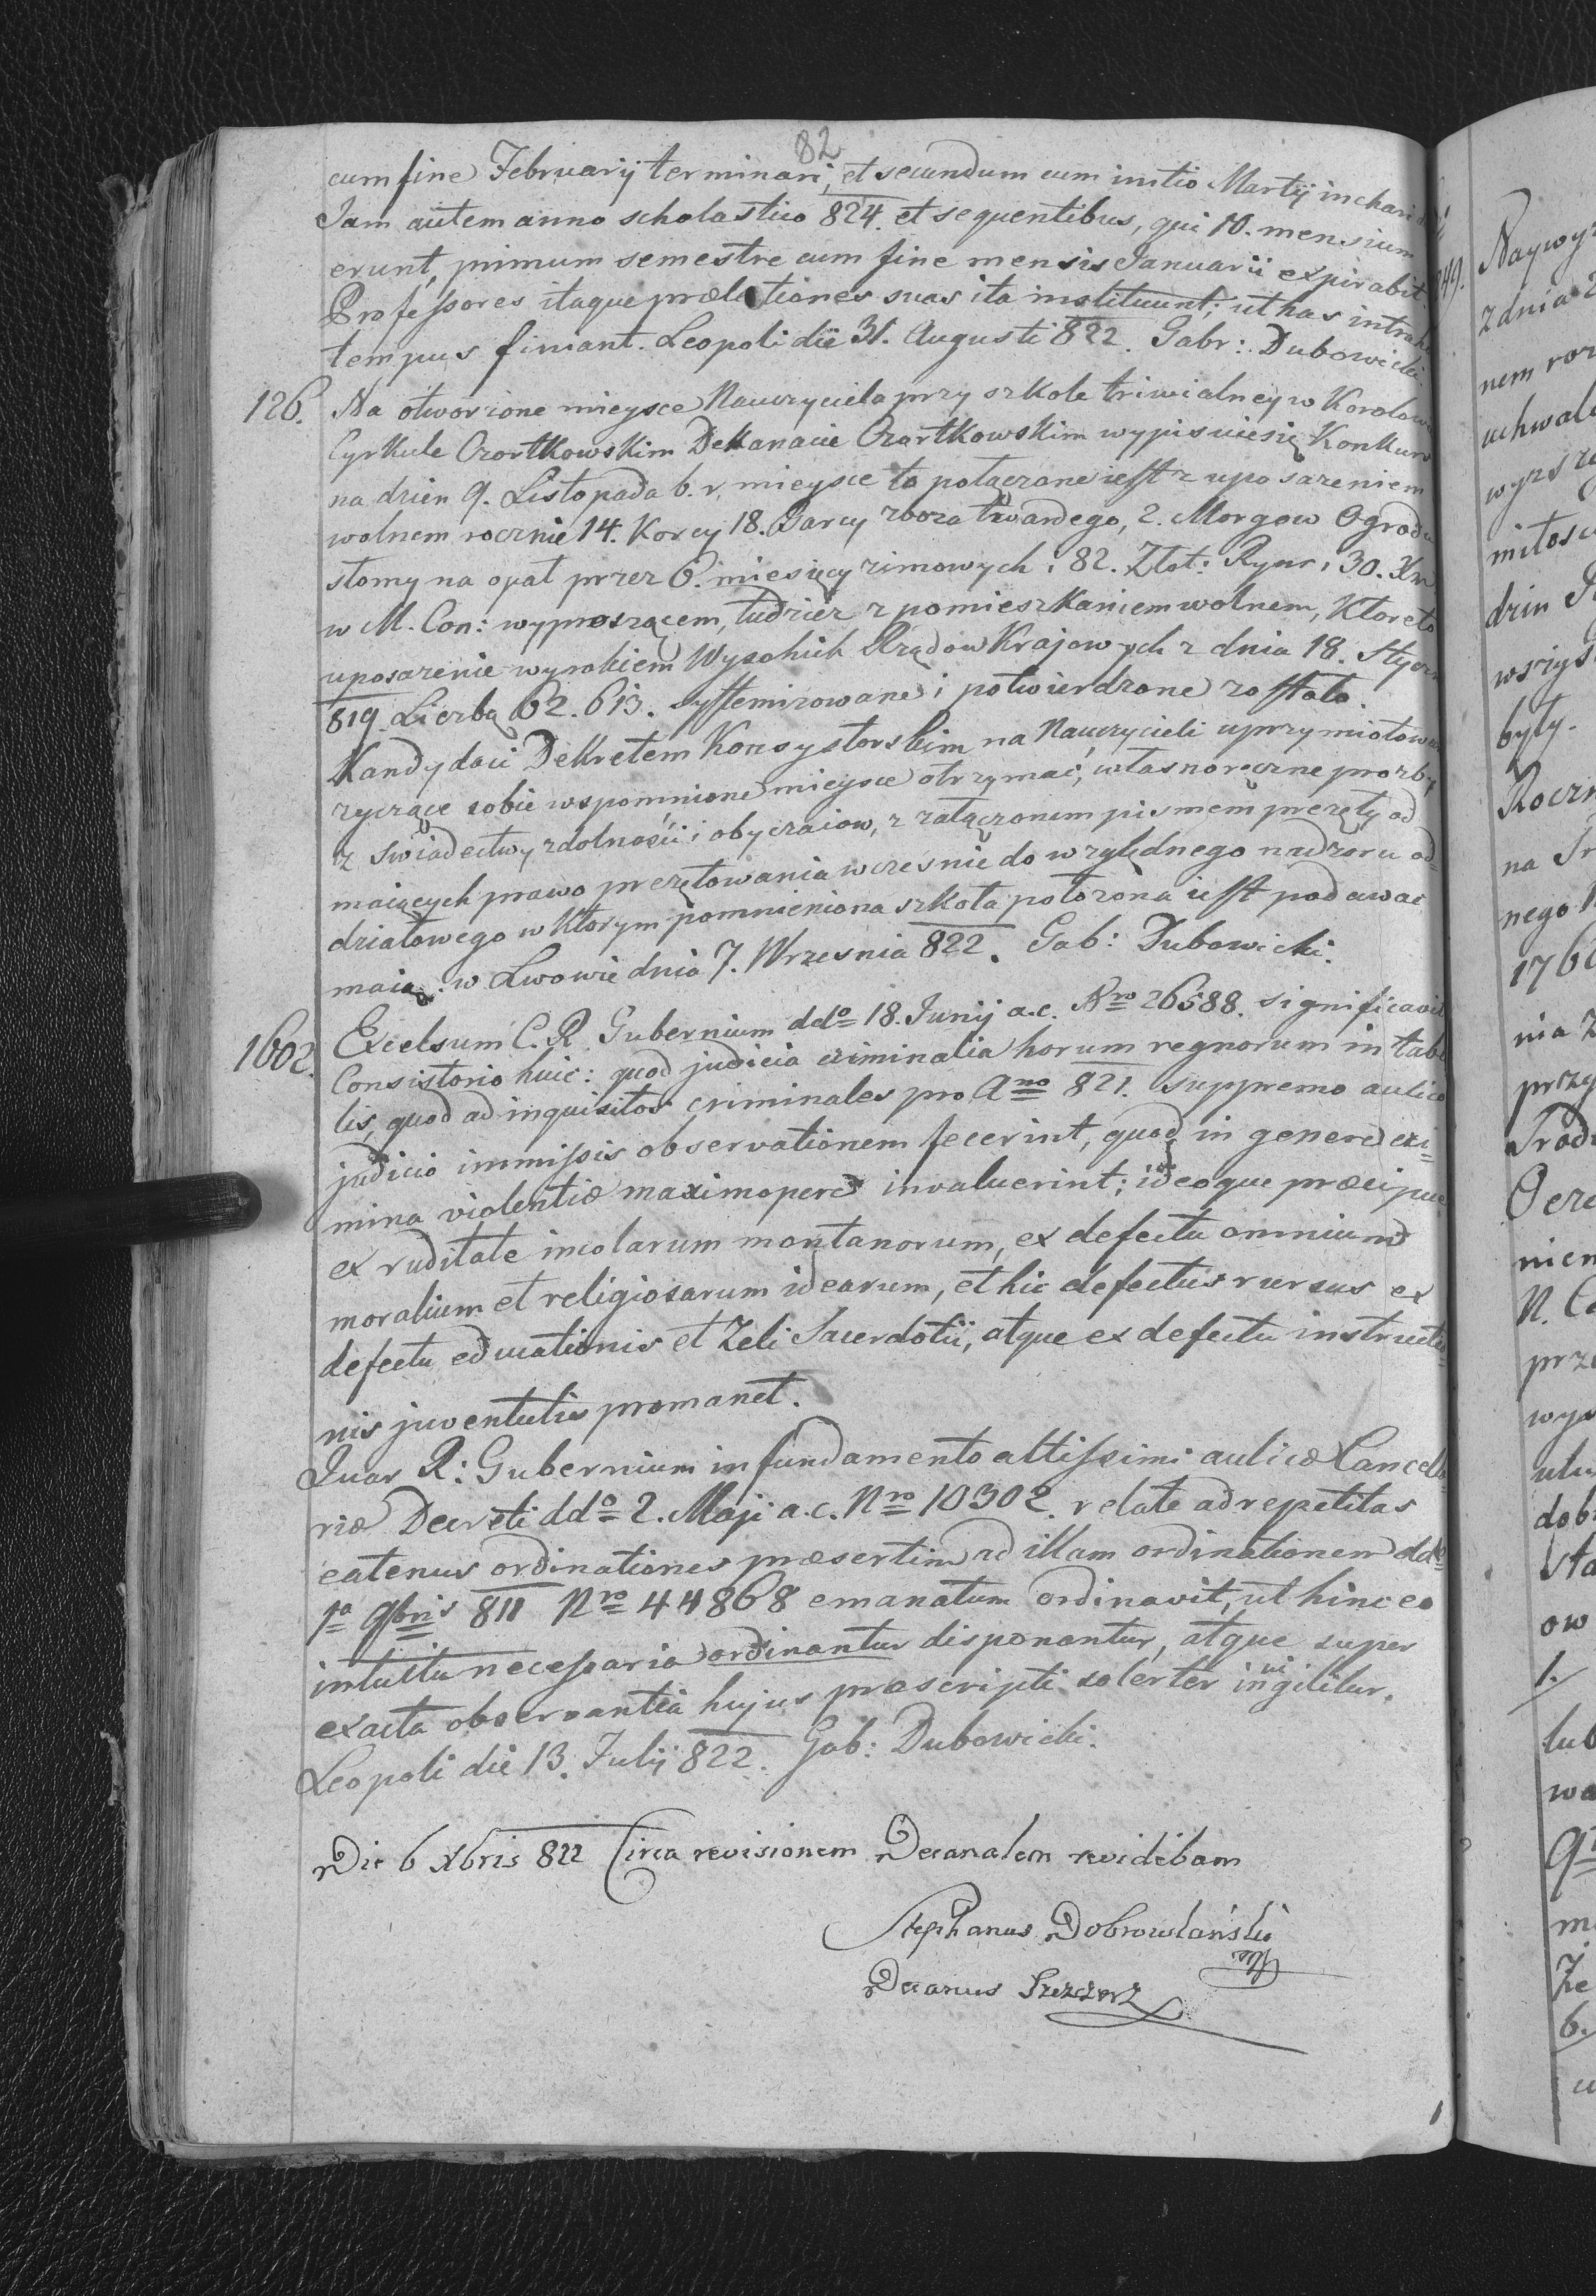 82
cum fine Februarij terminari, et secundum cum initio Martij inchari
Jam autem anno scholastico 824. et sequentibus, qui 10. mensium
erunt, primum semestre cum fine mensis Januarii expirabit
Professores itaque prælectiones suas ita instituunt; ut has intra
tempus finiant. Leopoli die 31. Augusti 822. Gabr: Dubowicki.
126. Na otworzone mieysce Nauczyciela przy szkole triwialney w
Cyrkule Czortkowskim Dekanacie Czortkowskim wypisuie się Konkurs
na dzien 9. Listopada b. r. mieysce to połączone iest z uposażeniem
wolnem rocznie 14. Korcy 18. Garcy zboża twardego, 2. Morgow Ogrodu
słomy na opał przez 6. miesięcy zimowych i 82. Złot: Rynr: 30. Xr
w M. Con: wynoszącem, tudzież z pomieszkaniem wolnem, które to
uposażenie wyrokiem Wysokich Rządow Krajowych z dnia 18. Stycz
819. Liczbą 62.613. systemizowane i potwierdzone zostało.
Kandydaci Dekretem Konsystorskim na Nauczycieli uprzymiotow
życzące sobie wspomnione mieysce otrzymać, własnoręczne prozby
z swiadectwy zdolności i obyczaiow, z załączonem pismem prezęty od
maiących prawo prezętowania wczesnie do względnego nadzoru od
działowego w którym pomnieniona szkoła położona iest podawać
maią. w Lwowie dnia 7. Wrzesnia 822. Gab: Dubowicki.
1602. Excelsum C. R. Gubernium ddo 18. Junij a.c. Nro 26588. significavit
Consistorio huic: quod judicia criminalia horum regnorum in tabel
lis, quod ad inquisitos criminales pro Ano 821. suppremo aulico
judicio immissis observationem fecerint, quod in genere cri=
mina violentiæ maximopere invaluerint; ideoque præcipue
ex ruditate incolarum montanorum, ex defectu omnium
moralium et religiosarum idearum, et hic defectus rursus ex
defectu educationis et Zeli Sacerdotii, atque ex defectu instructio=
nis juventutis promanet.
Quar R: Gubernium in fundamento altissimi aulicæ Cancella
riæ Decreti ddo 2. Maji a.c. Nro 10302. relate ad repetitas
eatenus ordinationes præsertim ad illam ordinationem ddo
1a 9bris 811 Nro 44868 emanatum ordinavit, ut hinc eo
intuitu necessaria ordinantur disponantur, atque super
exacta observantia hujus præscripti solerter invigilitur.
Leopoli die 13. Julij 822. Gab: Dubowicki.
Die 6 Xbris 822 Circa revisionem Decanalem revidebam
Stephanus
Decanus
Naywyż
z dnia 2
nem roz
uchwał
miłosc
wszys
były.
Roczn
nego
176
nia
przy
niem
prze
dob
sta
ow
1.
lub
6.